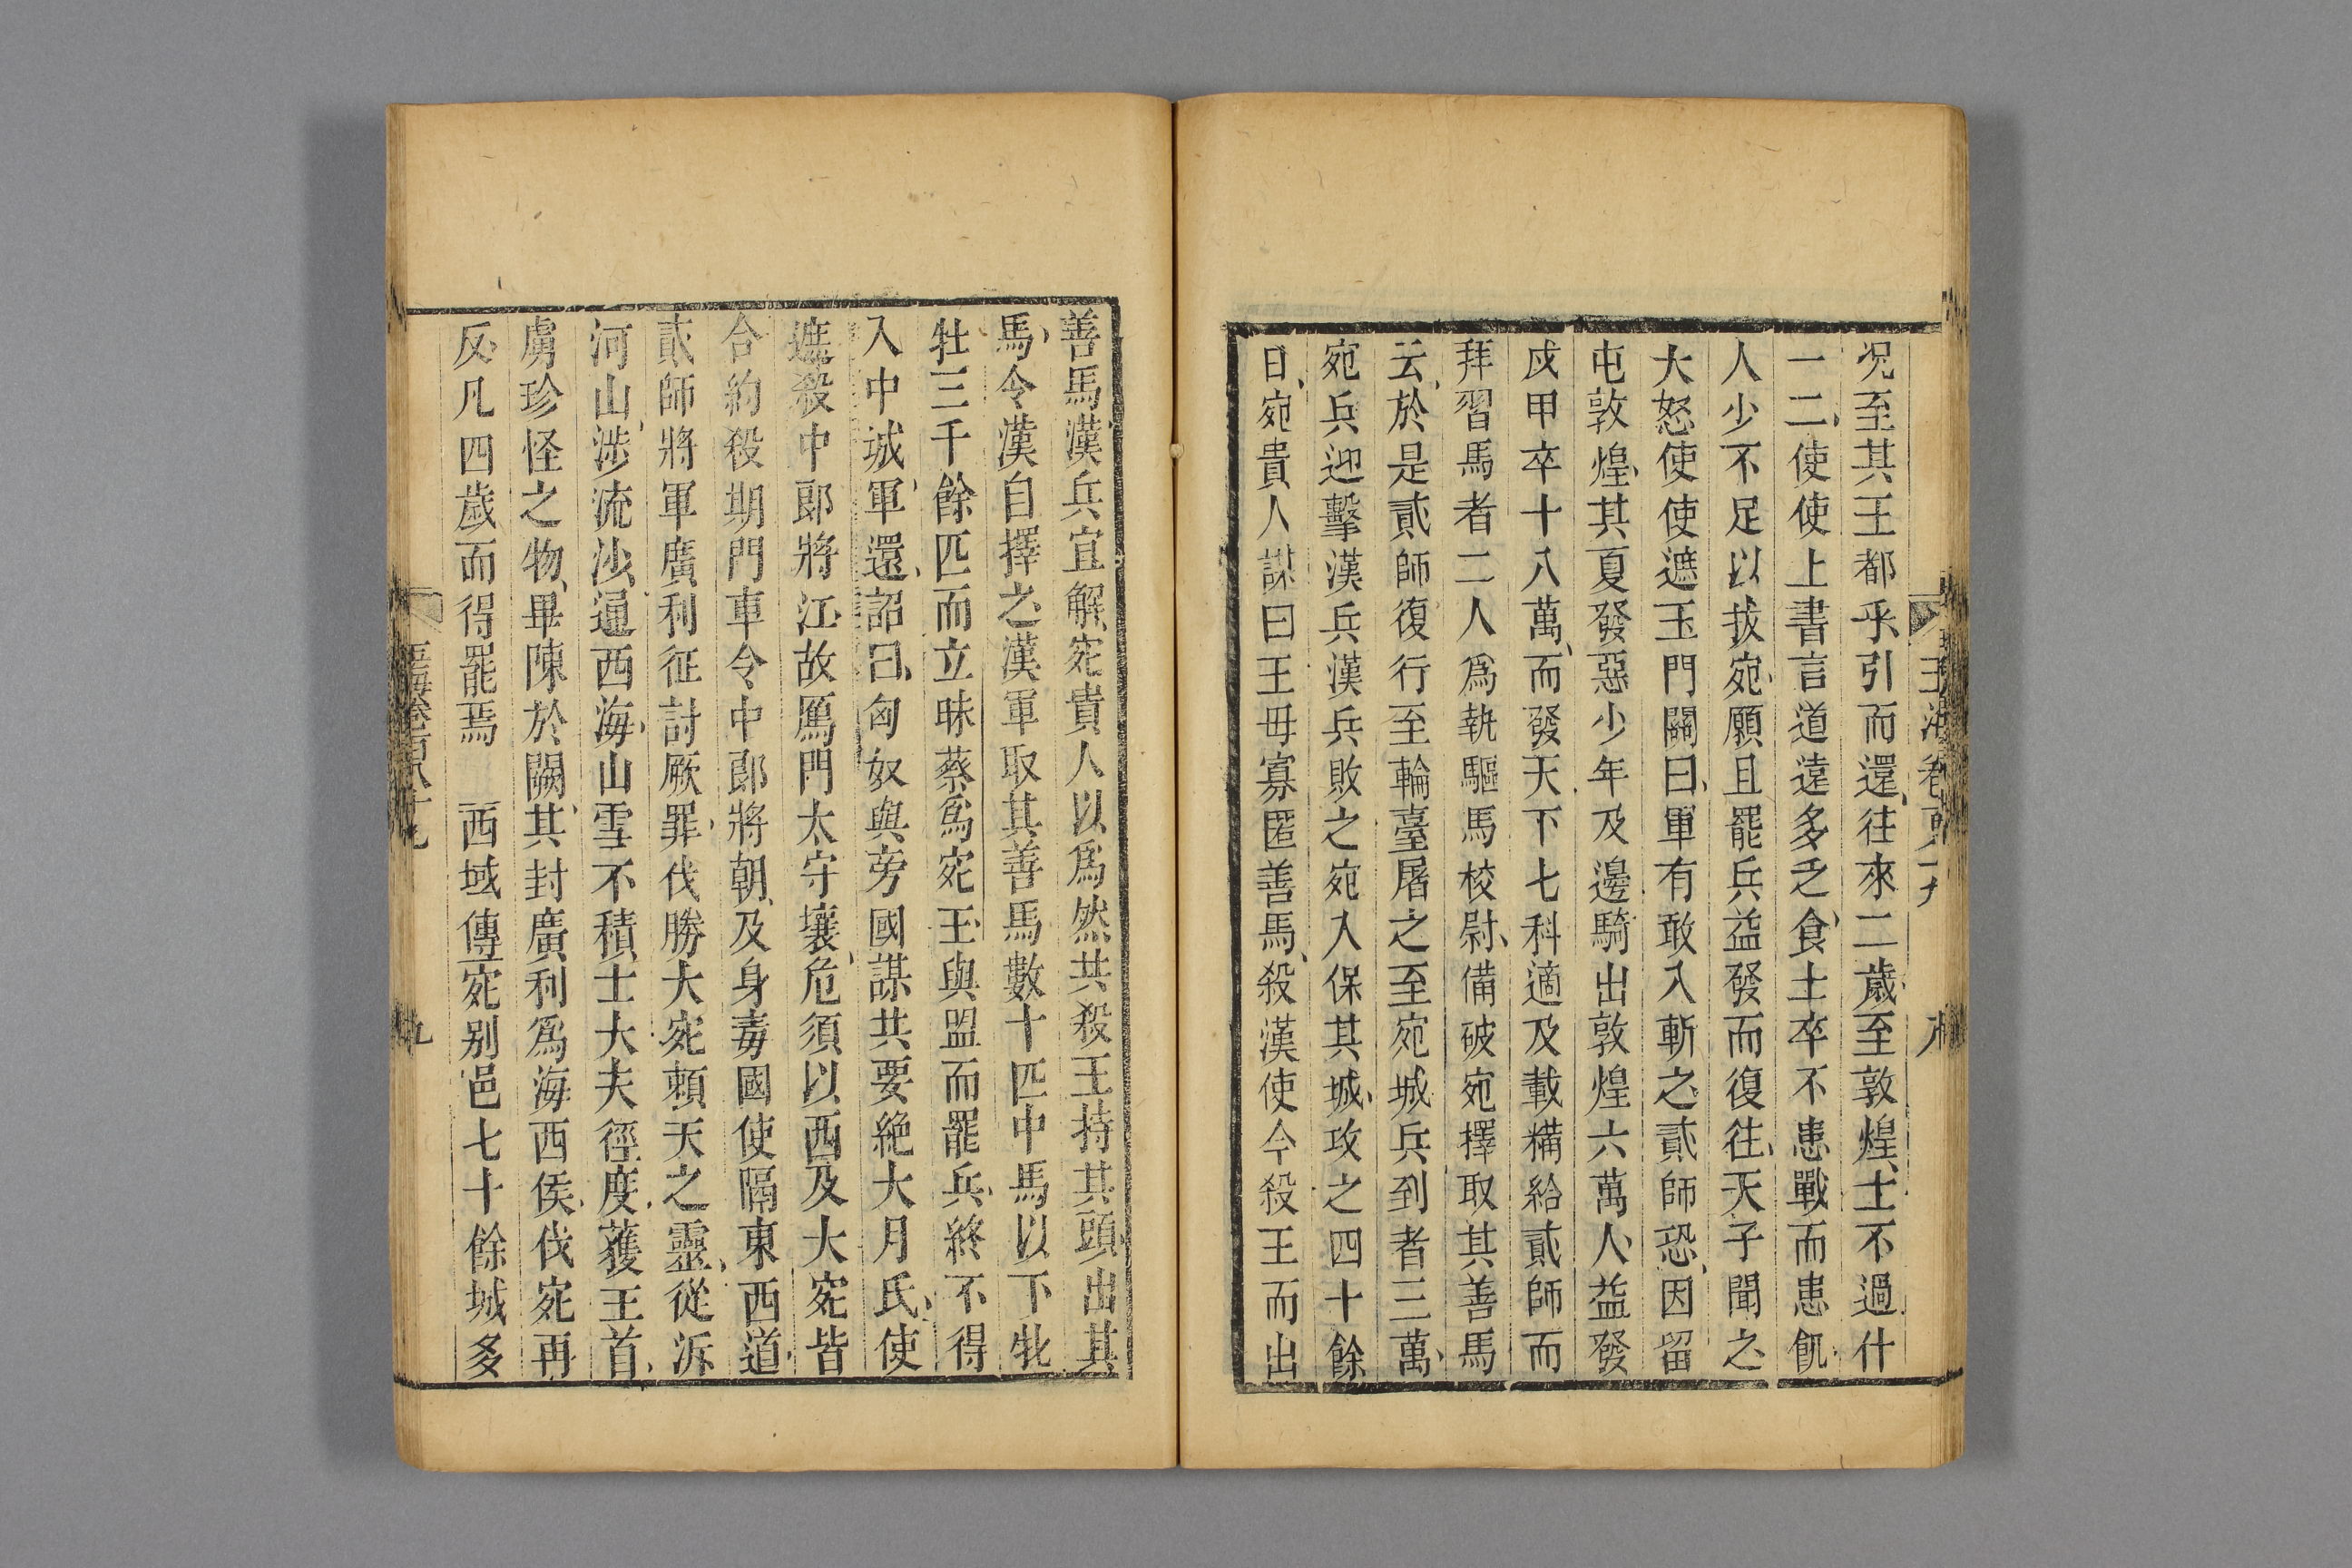 况至其王都乎引而還往來二歲至敦煌士不過什
一二使使上書言道遠多乏食士卒不患戰而患飢
人少不足以拔宛願且罷兵益發而復往天子聞之
大怒使使遮玉門關曰軍有敢入斬之貳師恐因留
屯敦煌其夏發惡少年及邊騎出敦煌六萬人益發
戍甲卒十八萬而發天下七科適及載糒給貳師而
拜習馬者二人爲執驅馬校尉備破宛擇取其善馬
云於是貳師復行至輪臺屠之至宛城兵到者三萬
宛兵迎擊漢兵漢兵敗之宛入保其城攻之四十餘
日宛貴人謀曰王毋寡匿善馬殺漢使今殺王而出
善馬漢兵宜解宛貴人以爲然共殺王持其頭出其
馬令漢自擇之漢軍取其善馬數十匹中馬以下牝
牡三千餘匹而立昧蔡爲宛王與盟而罷兵終不得
入中城軍還詔曰匈奴與旁國謀共要絶大月氏使
遮殺中郎將江故鴈門太守壤危須以西及大宛皆
合約殺期門車令中郎將朝及身毒國使隔東西道
貳師將軍廣利征討厥罪伐勝大宛頼天之靈從泝
河山涉流沙通西海山雪不積士大夫徑度獲王首
虜珍怪之物畢陳於闕其封廣利爲海西侯伐宛再
反凡四歲而得罷焉　西域傳宛别邑七十餘城多